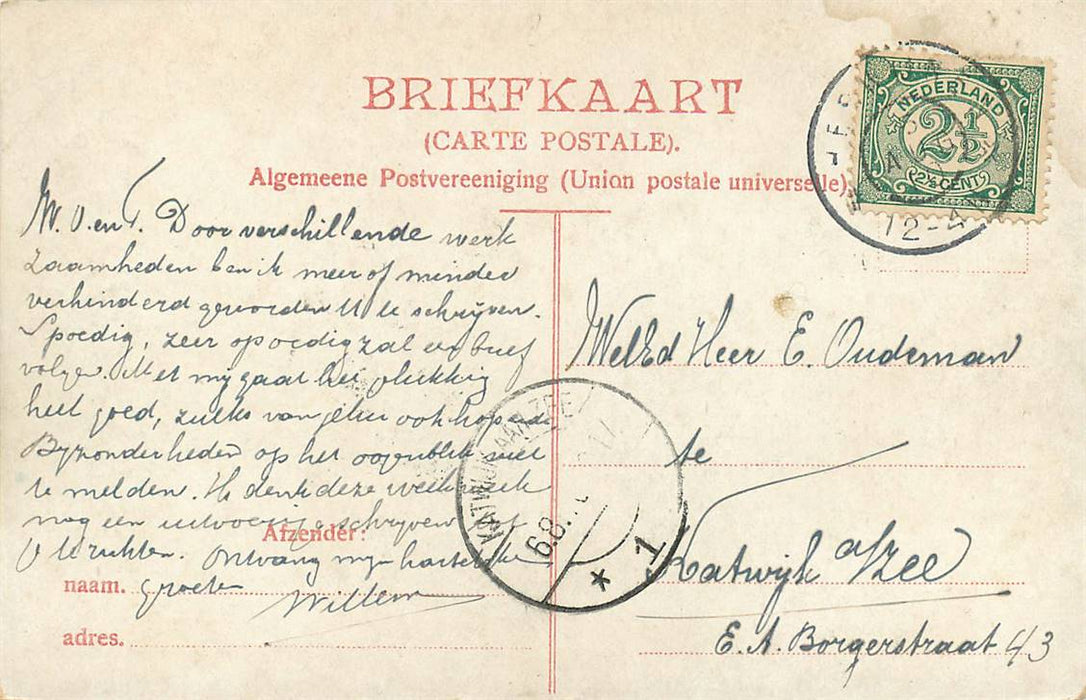 BRIEFKAART
(CARTE POSTALE).
Algemeene Postvereeniging (Union postale universelle)
NEDERLAND
2½
2½ CENT
12-4
W. V. en T. Door verschillende werk
zaamheden ben ik meer of minder
verhinderd geworden U te schrijven.
Spoedig, zeer spoedig zal een brief
volgen. Met mij gaat het gelukkig
heel goed, zulks van jelui ook hopende
Byzonderheden op het oogenblik niet
te melden. Ik denk deze week
nog een uitvoerig schrijven tot
U te richten. Ontvang mijn hartelijke
groeten
Willem
Afzender:
naam.
adres.
KATWIJK AAN ZEE
6.8.
1
WelEd Heer E. Oudeman
te
Katwijk a/Zee
E. A. Borgerstraat 43